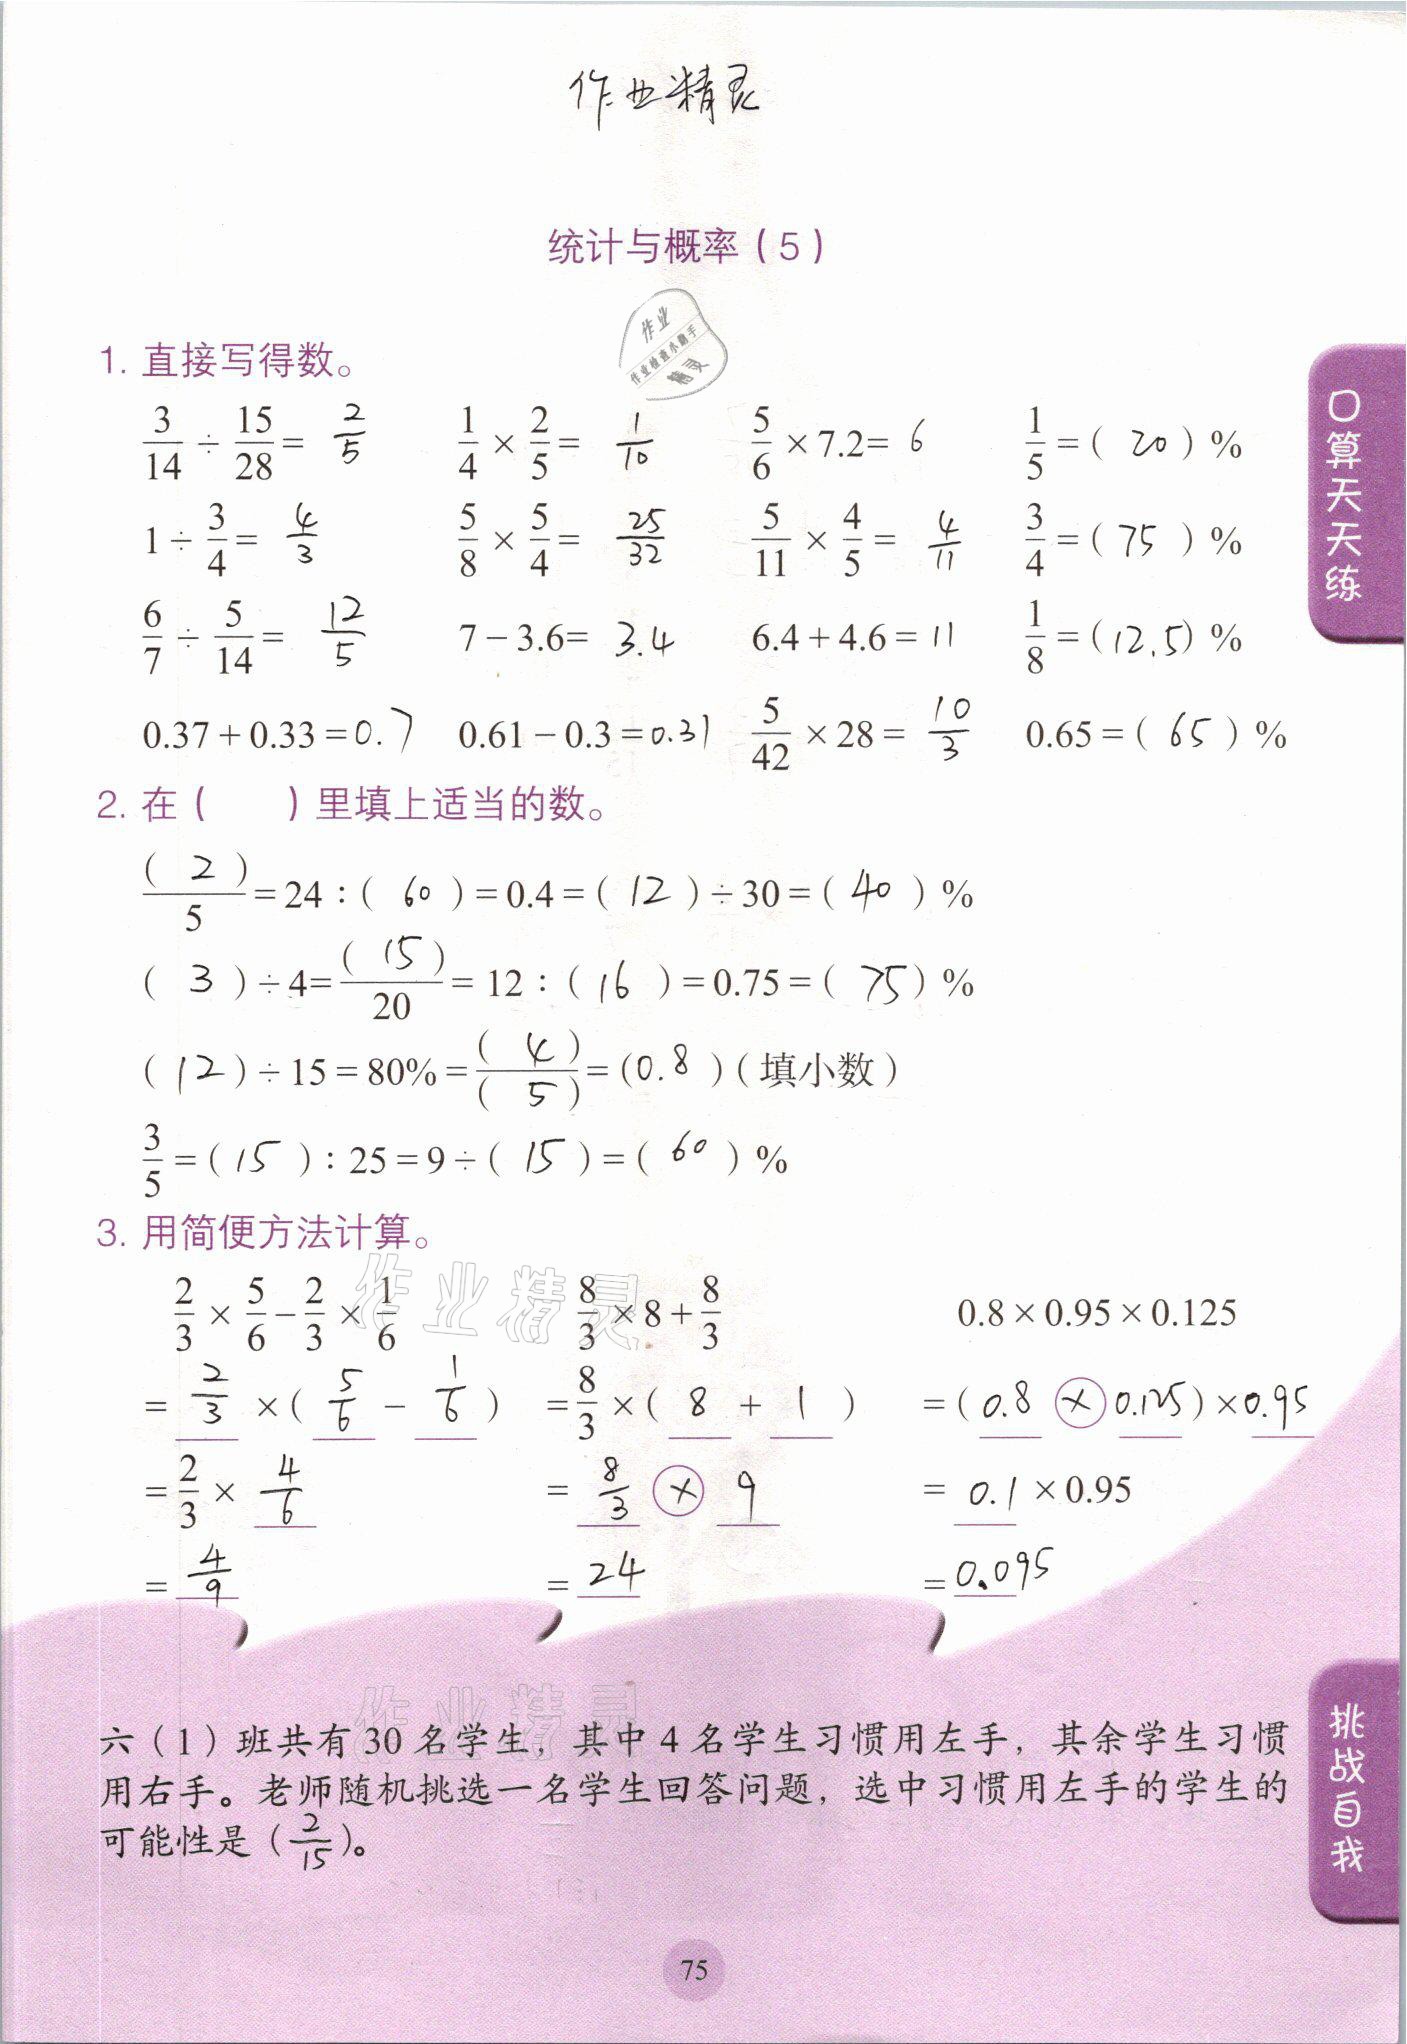 作业精灵
统计与概率（5）
作业
作业检查小助手
精灵
1. 直接写得数。
3/14 ÷ 15/28 = 2/5  1/4 × 2/5 = 1/10  5/6 × 7.2 = 6  1/5 =（20）%
1 ÷ 3/4 = 4/3  5/8 × 5/4 = 25/32  5/11 × 4/5 = 4/11  3/4 =（75）%
6/7 ÷ 5/14 = 12/5  7 − 3.6 = 3.4  6.4 + 4.6 = 11  1/8 =（12.5）%
0.37 + 0.33 = 0.7  0.61 − 0.3 = 0.31  5/42 × 28 = 10/3  0.65 =（65）%
2. 在（ ）里填上适当的数。
（2）/5 = 24 :（60）= 0.4 =（12）÷ 30 =（40）%
（3）÷ 4 =（15）/20 = 12 :（16）= 0.75 =（75）%
（12）÷ 15 = 80% =（4）/（5）=（0.8）（填小数）
3/5 =（15）: 25 = 9 ÷（15）=（60）%
3. 用简便方法计算。
作业精灵
2/3 × 5/6 − 2/3 × 1/6  8/3 × 8 + 8/3  0.8 × 0.95 × 0.125
= 2/3 ×（5/6 − 1/6）  = 8/3 ×（8 + 1）  =（0.8 × 0.125）× 0.95
= 2/3 × 4/6  = 8/3 × 9  = 0.1 × 0.95
= 4/9  = 24  = 0.095
作业精灵
六（1）班共有30名学生，其中4名学生习惯用左手，其余学生习惯
用右手。老师随机挑选一名学生回答问题，选中习惯用左手的学生的
可能性是（2/15）。
75
口算天天练
挑战自我